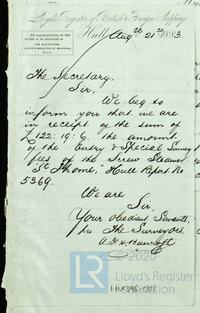 Lloyd's Register of British & Foreign Shipping
All communications on this
subject to be addressed to
THE SECRETARY,
Hull Augst 21st 1883
The Secretary,
Sir,
We beg to
inform you that we are
in receipt of the sum of
£122:19:6 the amount
of the Entry & Special Survey
fees of the Screw Steamer
"St Thomé" Hull Report No
5369.
We are
Sir
Your obedient Servants,
The Surveyors
© 2020
Lloyd's Register
Foundation